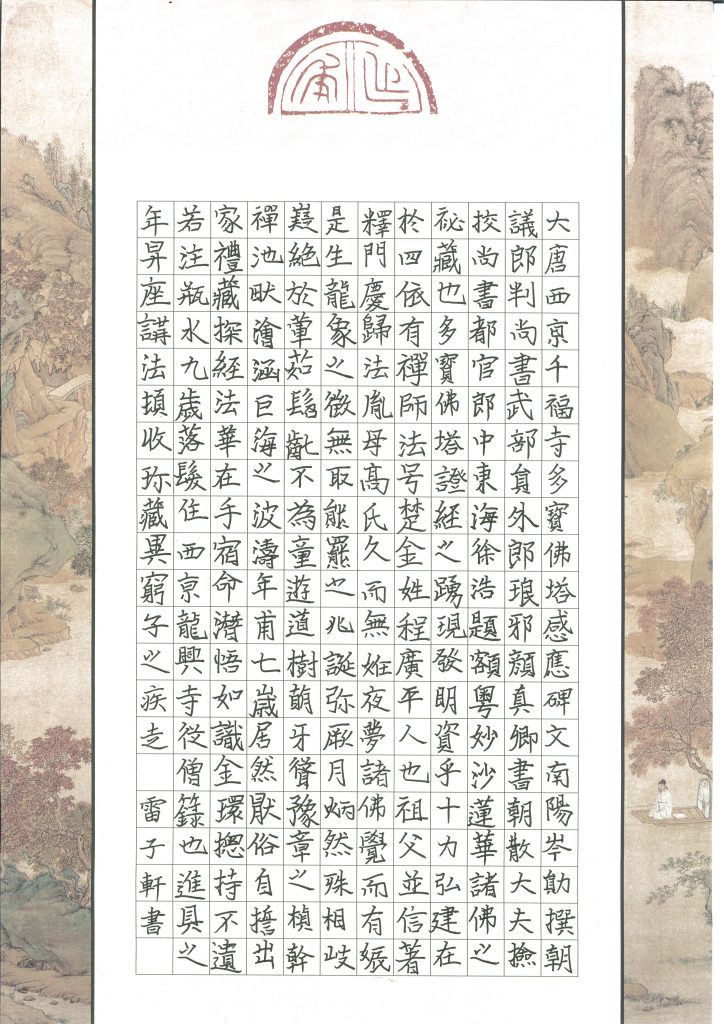 大唐西京千福寺多寶佛塔感應碑文南陽岑勛撰朝
議郎判尚書武部員外郎琅邪顏真卿書朝散大夫撿
挍尚書都官郎中東海徐浩題額粵妙沙蓮華諸佛之
祕藏也多寶佛塔證經之踴現發明資乎十力弘建在
於四依有禪師法号楚金姓程廣平人也祖父並信著
釋門慶歸法胤母高氏久而無姙夜夢諸佛覺而有娠
是生龍象之徵無取熊羆之兆誕弥厥月炳然殊相岐
嶷絕於葷茹髫齔不為童遊道樹萌牙聳豫章之楨幹
禪池畎澮涵巨海之波濤年甫七歲居然厭俗自誓出
家禮藏探經法華在手宿命潛悟如識金環揔持不遺
若注瓶水九歲落髮住西京龍興寺從僧籙也進具之
年昇座講法頓收珎藏異窮子之疾走 雷子軒書